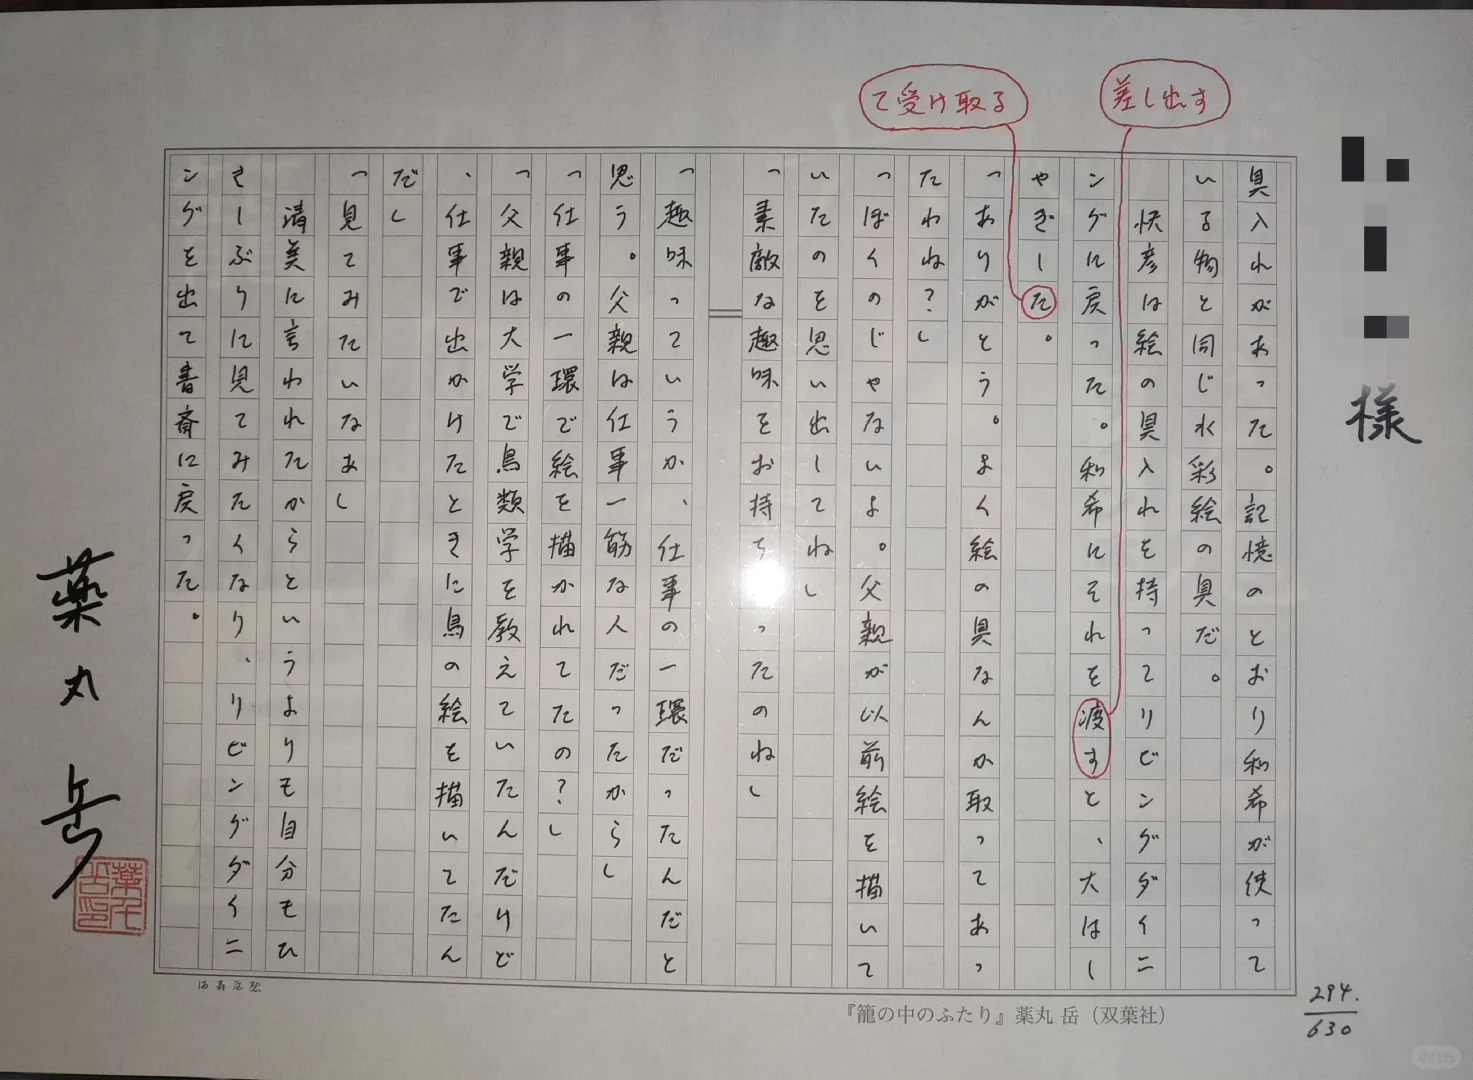 て受け取る
差し出す
様
具入れがあった。記憶のとおり和希が使って
いる物と同じ水彩絵の具だ。
快彦は絵の具入れを持ってリビングダイニ
ングに戻った。和希にそれを渡すと、大はし
ゃぎした。
「ありがとう。よく絵の具なんか取ってあっ
たわね?」
「ぼくのじゃないよ。父親が以前絵を描いて
いたのを思い出してね」
「素敵な趣味をお持ちだったのね」
「趣味っていうか、仕事の一環だったんだと
思う。父親は仕事一筋な人だったから」
「仕事の一環で絵を描かれてたの?」
「父親は大学で鳥類学を教えていたんだけど
、仕事で出かけたときに鳥の絵を描いてたん
だ」
「見てみたいなあ」
清美に言われたからというよりも自分もひ
さしぶりに見てみたくなり、リビングダイニ
ングを出て書斎に戻った。
薬丸岳
『籠の中のふたり』薬丸 岳(双葉社)
294.
630